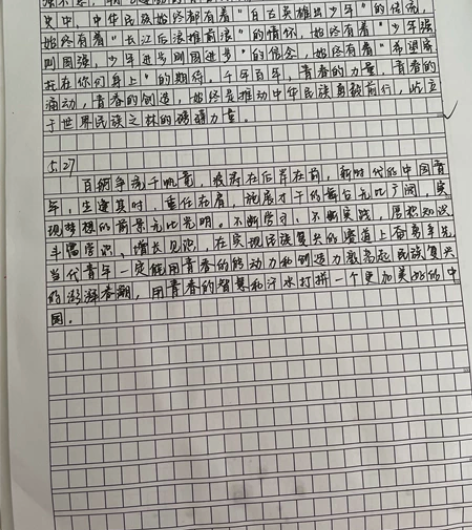 史中，中华民族始终都有着"自古英雄出少年"的传统，
始终有着"长江后浪推前浪"的情怀，始终有着"少年强
则国强，少年进步则国进步"的信念，始终有着"希望寄
托在你们身上"的期待。千年百年，青春的力量，青春的
涌动，青春的创造，始终是推动中华民族勇毅前行，屹立
于世界民族之林的磅礴力量。
5.27
百舸争流千帆竞，波涛在后岸在前，新时代的中国青
年，生逢其时，重任在肩，施展才干的舞台无比广阔，实
现梦想的前景无比光明。不断学习，不断实践，层积知识
丰富学识，增长见识，在实现民族复兴的赛道上奋勇争先
当代青年一定能用青春的能动力和创造力激荡起民族复兴
的澎湃春潮，用青春的智慧和汗水打拼一个更加美好的中
国。